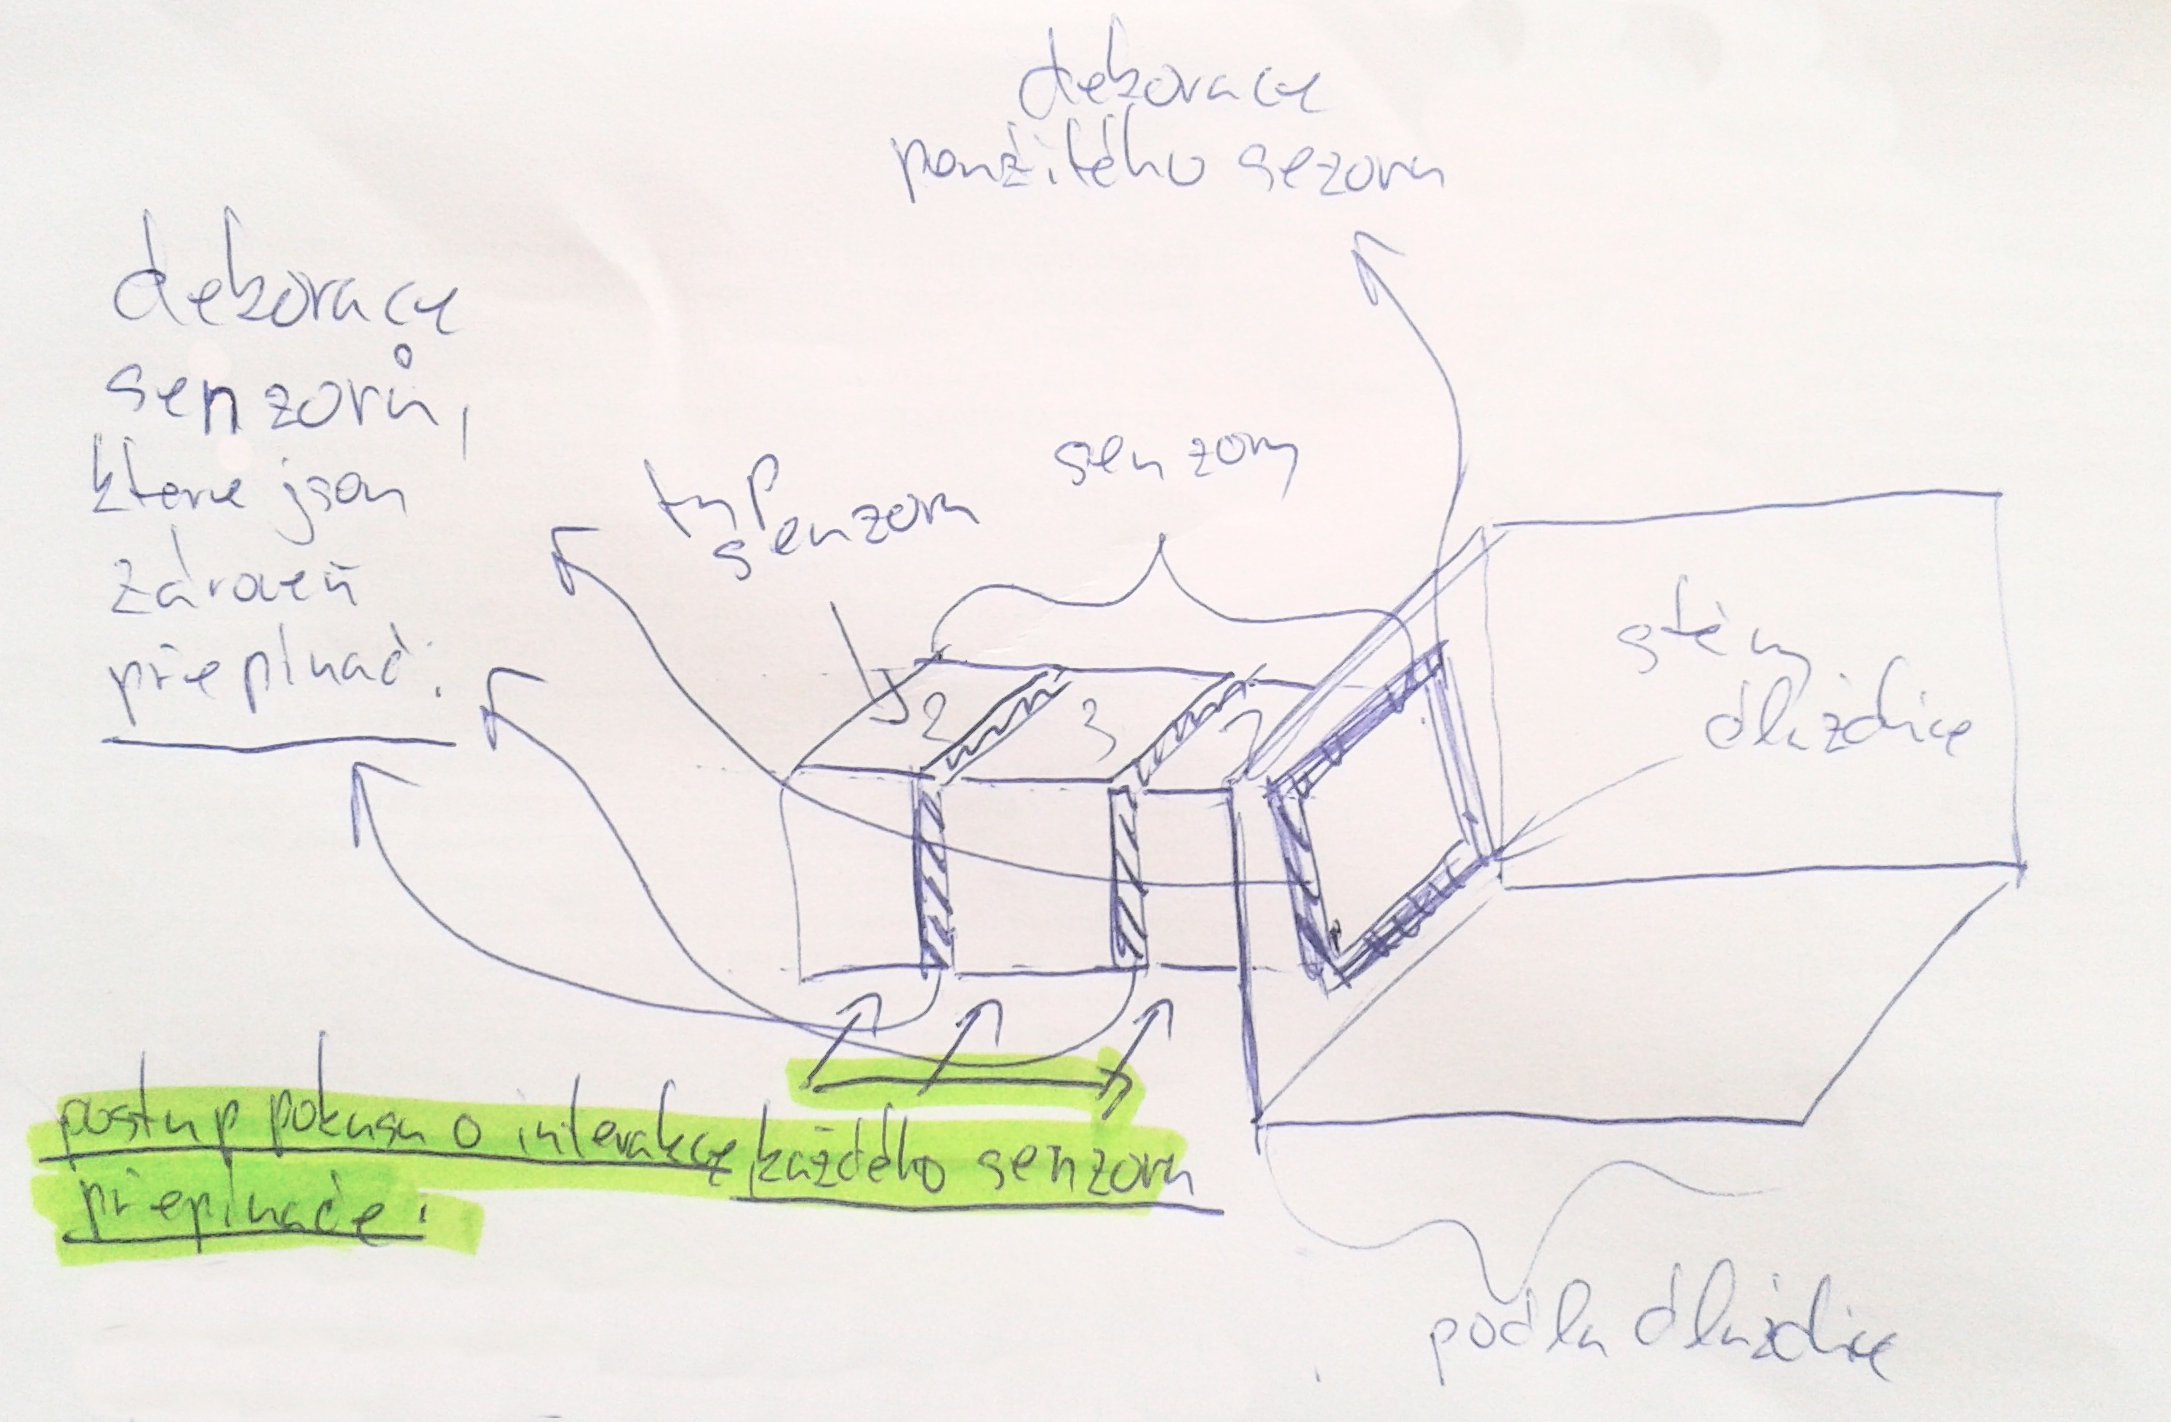 dekorace
použitého sezoru
dekorace
senzorů,
které jsou
zároveň
přepínač:
typ
senzoru
senzory
2
3
stěny
dlaždice
postup pokusu o interakce každého senzoru
přepínače:
podla dlaždice